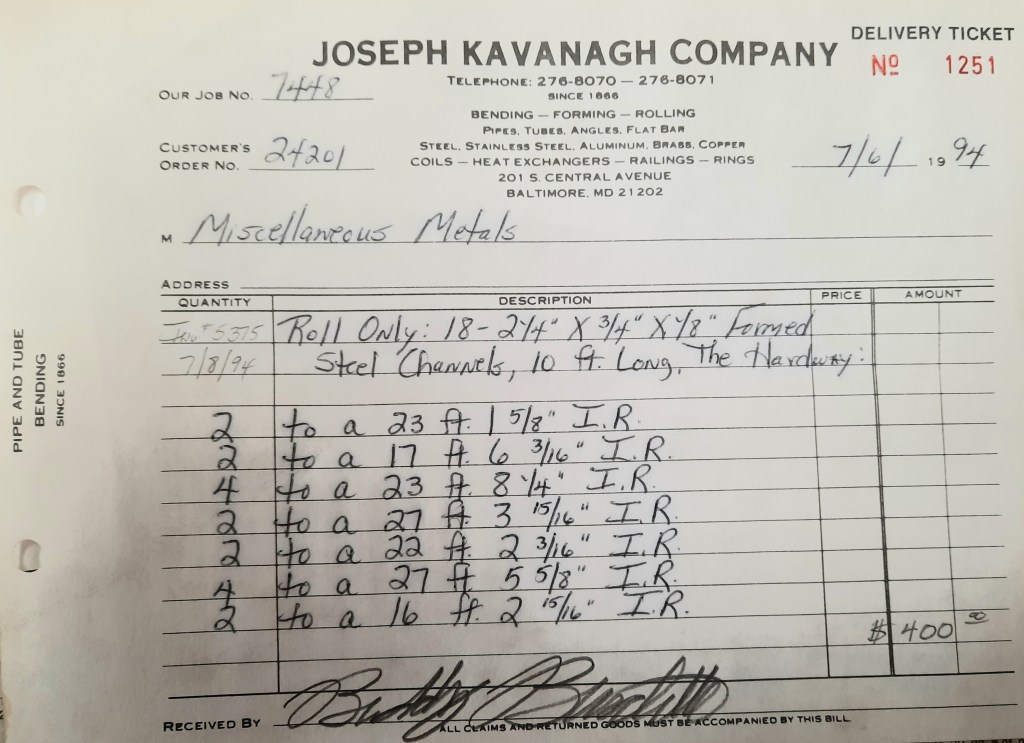 DELIVERY TICKET
JOSEPH KAVANAGH COMPANY
Nº 1251
TELEPHONE: 276-8070 — 276-8071
SINCE 1866
OUR JOB NO. 7448
BENDING — FORMING — ROLLING
PIPES, TUBES, ANGLES, FLAT BAR
CUSTOMER'S
ORDER NO. 24201
STEEL, STAINLESS STEEL, ALUMINUM, BRASS, COPPER
COILS — HEAT EXCHANGERS — RAILINGS — RINGS
7/6/ 19 94
201 S. CENTRAL AVENUE
BALTIMORE, MD 21202
M Miscellaneous Metals
ADDRESS
QUANTITY DESCRIPTION PRICE AMOUNT
Inv # 5375 Roll Only: 18 - 2 1/4" X 3/4" X 1/8" Formed
7/8/94 Steel Channels, 10 ft. Long, The Hardway:
2 to a 23 ft. 1 5/8" I.R.
2 to a 17 ft. 6 3/16" I.R.
4 to a 23 ft. 8 1/4" I.R.
2 to a 27 ft. 3 15/16" I.R.
2 to a 22 ft. 2 3/16" I.R.
4 to a 27 ft 5 5/8" I.R.
2 to a 16 ft. 2 15/16" I.R.
$ 400 00
RECEIVED BY Buddy
ALL CLAIMS AND RETURNED GOODS MUST BE ACCOMPANIED BY THIS BILL
PIPE AND TUBE
BENDING
SINCE 1866